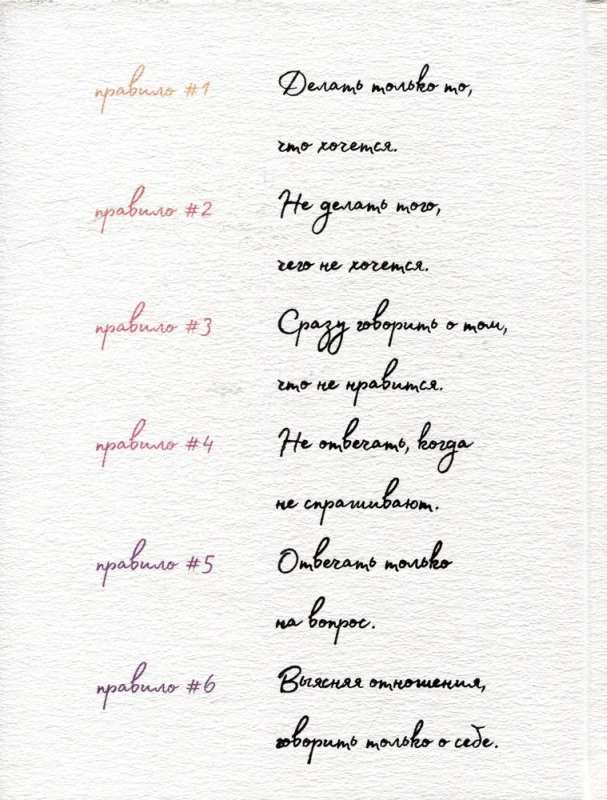 правило #1 Делать только то,
что хочется.
правило #2 Не делать того,
чего не хочется.
правило #3 Сразу говорить о том,
что не нравится.
правило #4 Не отвечать, когда
не спрашивают.
правило #5 Отвечать только
на вопрос.
правило #6 Выясняя отношения,
говорить только о себе.